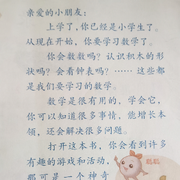 亲爱的小朋友：
上学了，你已经是小学生了。
从现在开始，你要学习数学了。
你会数数吗？认识积木的形
状吗？会看钟表吗？……这些都
是我们要学习的数学。
数学是很有用的，学会它，
你可以知道很多事情，能增长本
领，还会解决很多问题。
打开这本书，你会看到许多
有趣的游戏和活动，
那可是一个神奇